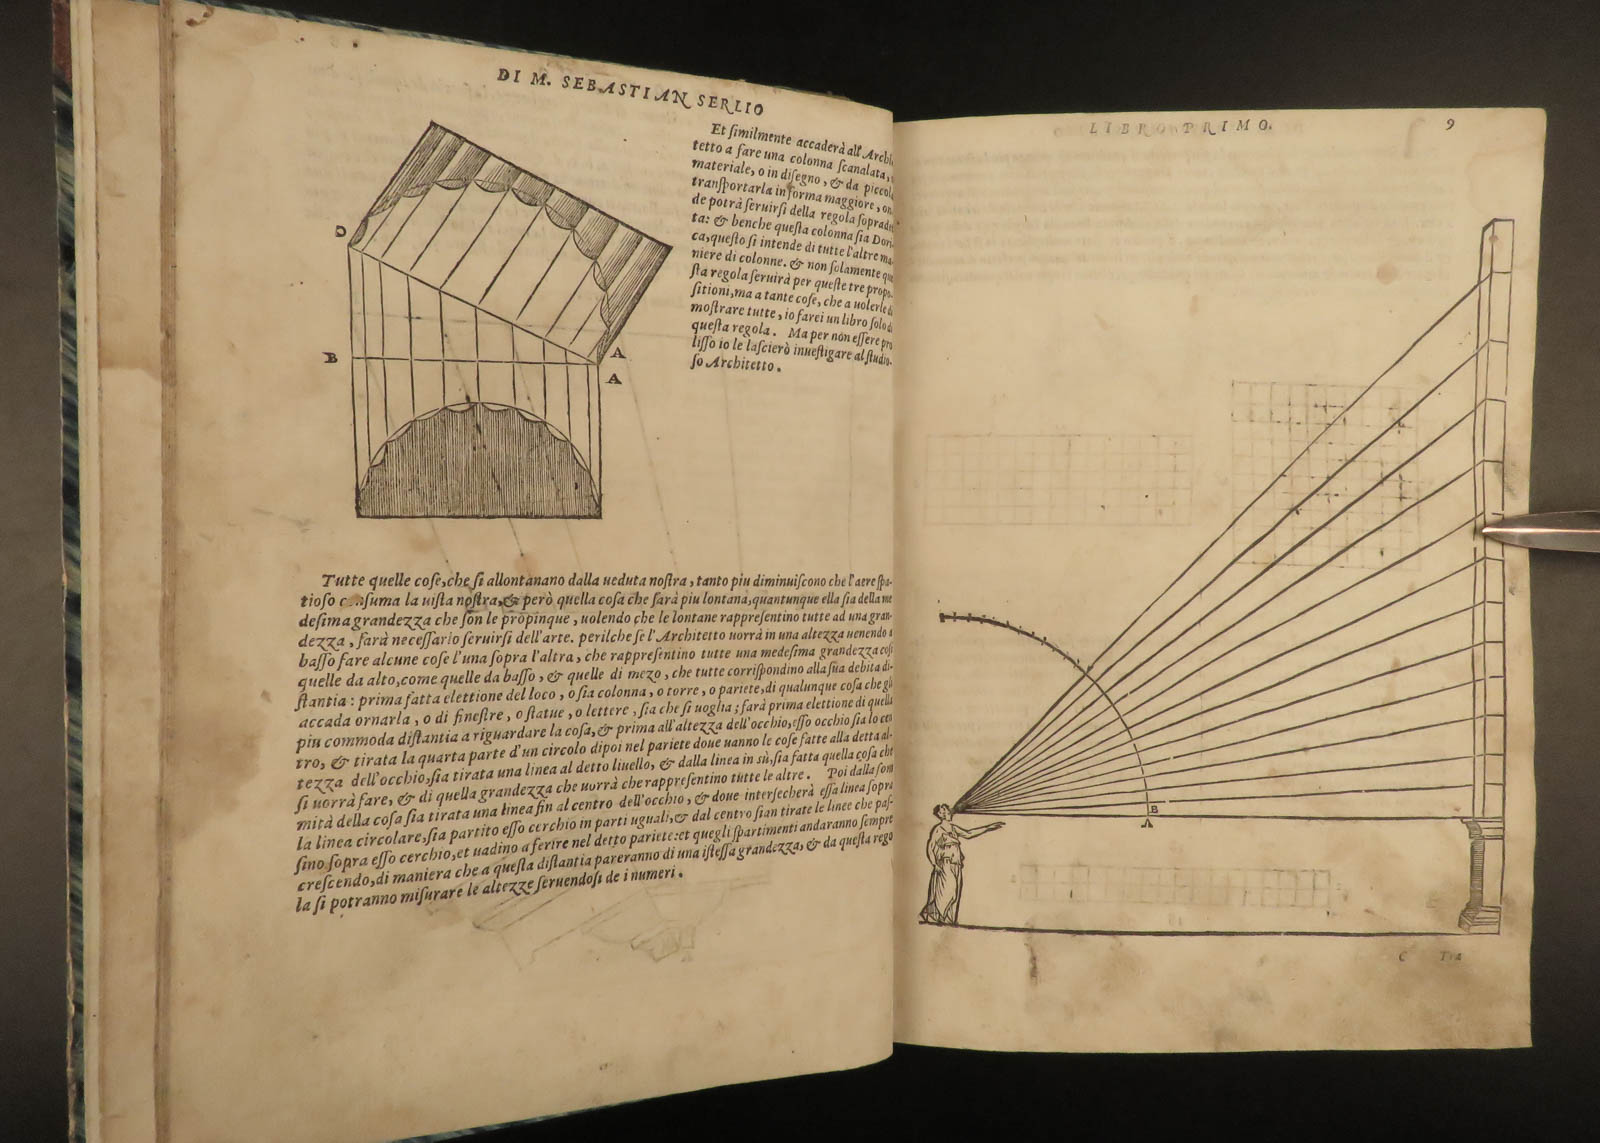 DI M. SEBASTIAN SERLIO
Et ſimilmente accaderà all'Archi
tetto a fare una colonna ſcanalata,
materiale, o in diſegno, & da piccola
tranſportarla in forma maggiore, on
de potrà ſeruirſi della regola ſopradet
ta: & benche queſta colonna ſia Dori
ca, queſto ſi intende di tutte l'altre ma
niere di colonne. & non ſolamente que
ſta regola ſeruirà per queſte tre propo
ſitioni, ma a tante coſe, che a uolerle di
moſtrare tutte, io farei un libro ſolo di
queſta regola. Ma per non eſſere pro
liſſo io le laſcierò inueſtigare al ſtudio-
ſo Architetto.
D
B
A
A
Tutte quelle coſe, che ſi allontanano dalla ueduta noſtra, tanto piu diminuiſcono che l'aere ſpa-
tioſo conſuma la uiſta noſtra, & però quella coſa che ſarà piu lontana, quantunque ella ſia della me
deſima grandezza che ſon le propinque, uolendo che le lontane rappreſentino tutte ad una gran-
dezza, farà neceſſario ſeruirſi dell'arte. perilche ſe l'Architetto uorrà in una altezza uenendo a
baſſo fare alcune coſe l'una ſopra l'altra, che rappreſentino tutte una medeſima grandezza coſi
quelle da alto, come quelle da baſſo, & quelle di mezo, che tutte corriſpondino alla ſua debita di-
ſtantia: prima fatta elettione del loco, o ſia colonna, o torre, o pariete, di qualunque coſa che gli
accada ornarla, o di fineſtre, o ſtatue, o lettere, ſia che ſi uoglia; farà prima elettione di quella
piu commoda diſtantia a riguardare la coſa, & prima all'altezza dell'occhio, eſſo occhio ſia lo cen
tro, & tirata la quarta parte d'un circolo dipoi nel pariete doue uanno le coſe fatte alla detta al-
tezza dell'occhio, ſia tirata una linea al detto liuello, & dalla linea in sù, ſia fatta quella coſa che
ſi uorrà fare, & di quella grandezza che uorrà che rappreſentino tutte le altre. Poi dalla ſom
mità della coſa ſia tirata una linea fin al centro dell'occhio, & doue interſecherà eſſa linea ſopra
la linea circolare, ſia partito eſſo cerchio in parti uguali, & dal centro ſian tirate le linee che paſ-
ſino ſopra eſſo cerchio, et uadino a ferire nel detto pariete: et quegli ſpartimenti andaranno ſempre
creſcendo, di maniera che a queſta diſtantia pareranno di una iſteſſa grandezza, & da queſta rego
la ſi potranno miſurare le altezze ſeruendoſi de i numeri.
LIBRO PRIMO. 9
B
A
C Tra